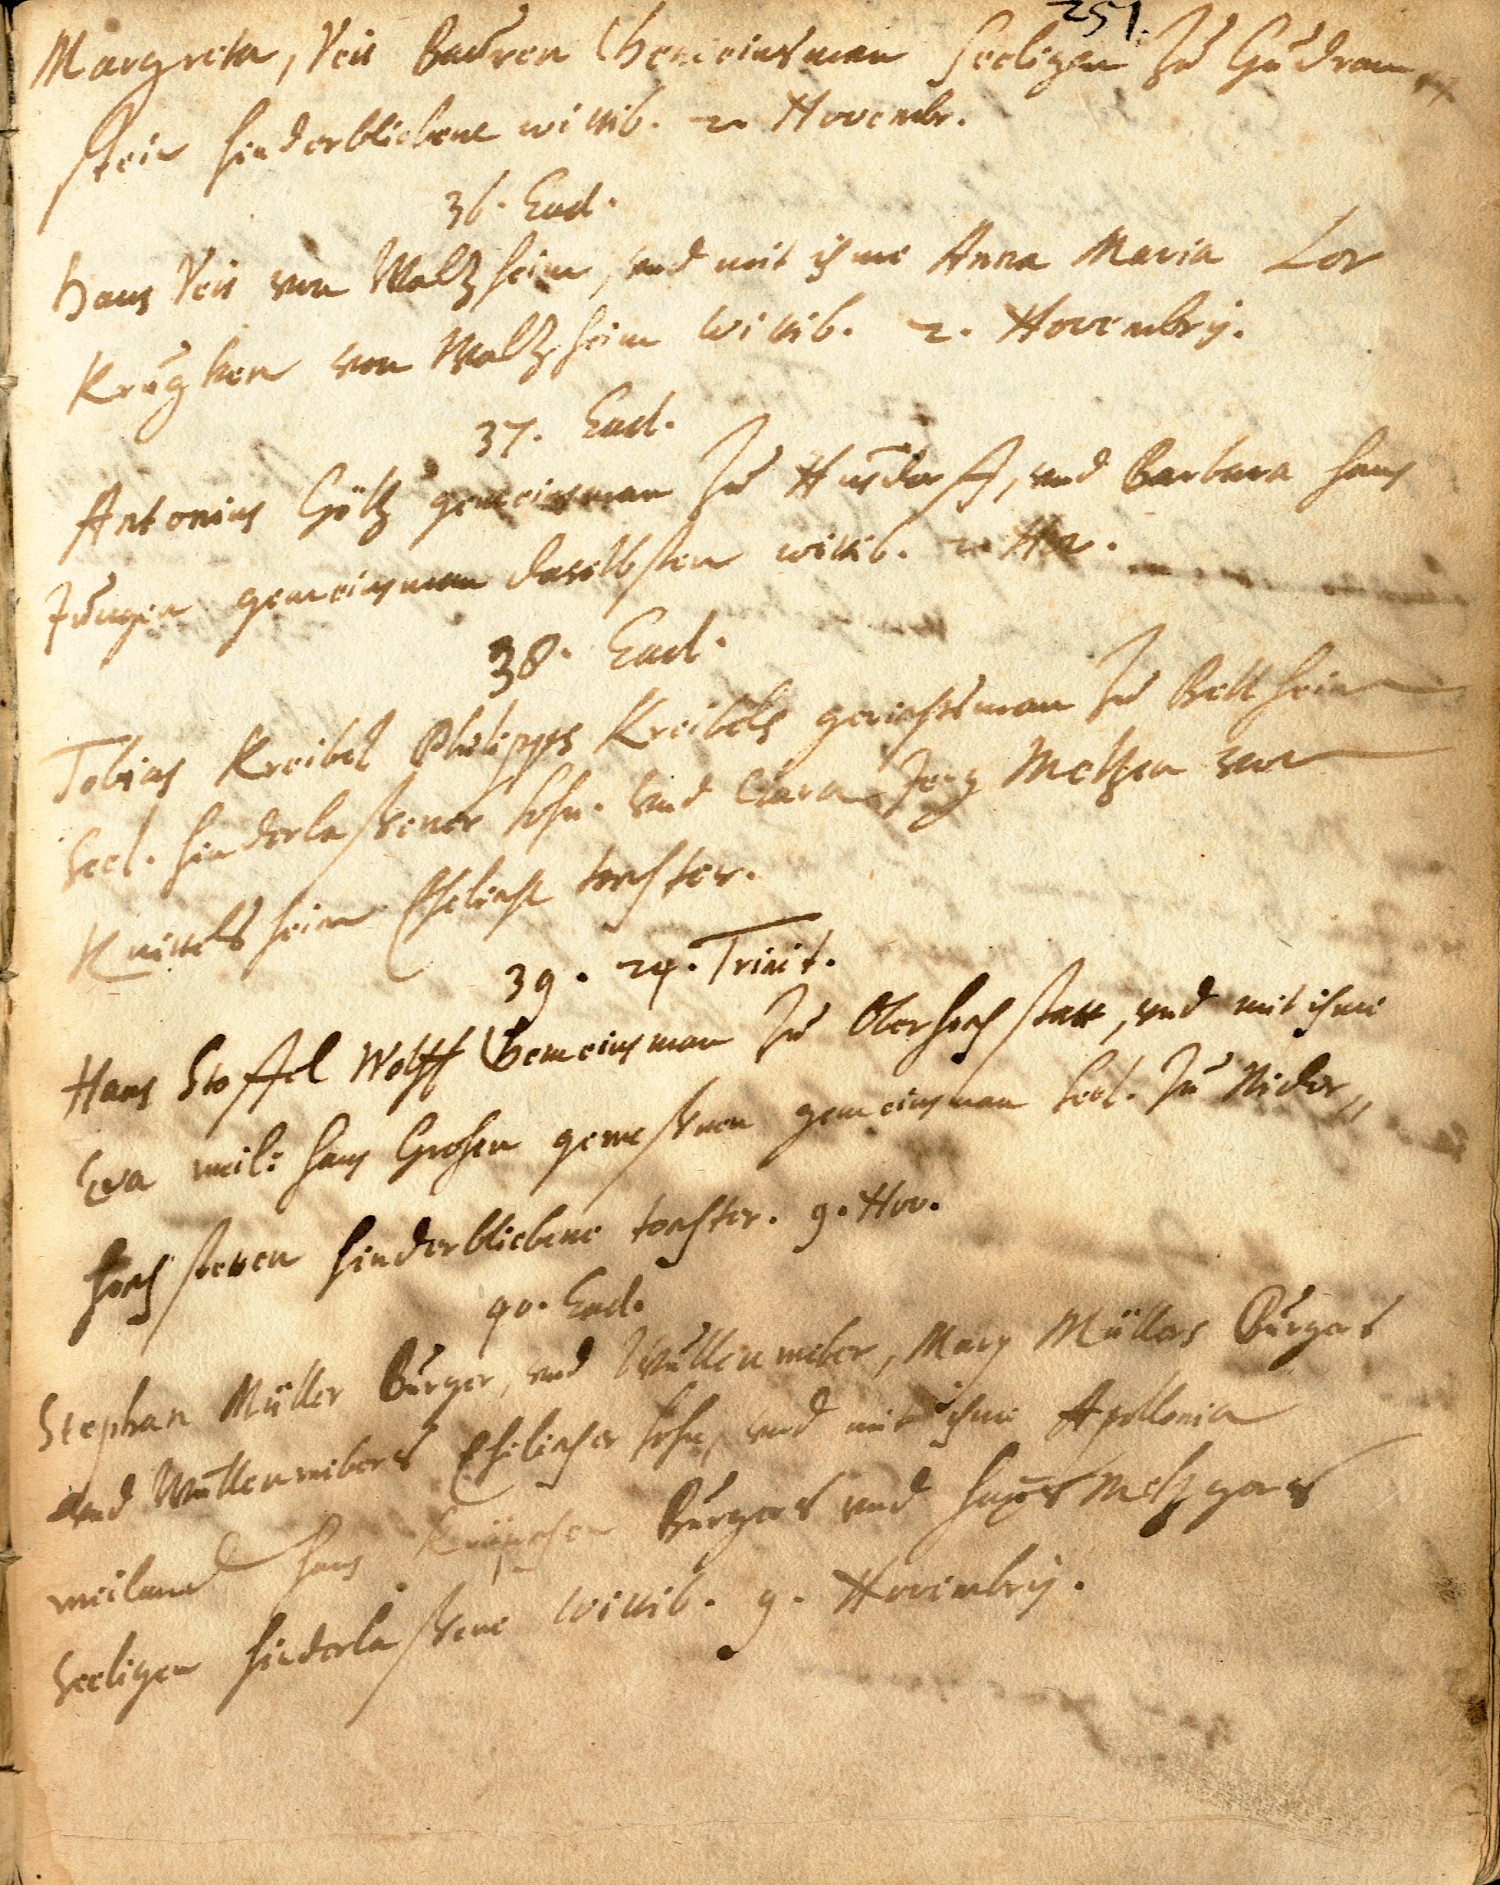 251.
Margreta, Veit Bauren Gemeinsman Seeligen Zu Gudram„
stein hinderbliebene wittib. 2 Novembr.
36. Ead.
Hans Veit von Waltzheim, und mit ihme Anna Maria Lor
Krugken von Waltzheim wittib. 2. Novembrij.
37. Ead.
Antonius Götz gemeinsman Zu Ausdorff, und Barbara Hans
Jungen gemeinsman daselbsten wittib. 2 Nov.
38. Ead.
Tobias Kreibel Philipps Kreibels gerichtsman Zu Bellheim
Seel. hinderlaßener sohn. und Clara Jerg Metzen von
Knittelsheim Eheliche tochter.
39. 24. Trinit.
Hans Stoffel Wolff Gemeinsman Zu Oberhochstatt, und mit ihme
Eva weil: Hans Grosen geweßnen gemeinsman Seel. Zu Nider„
hochstetten hinderbliebene tochter. 9. Nov.
40. Ead.
Stephan Müller Burger, und Wullenweber, Marx Müllers Burgers
und Wullenwebers Ehelicher sohn, und mit ihme Apollonia
weiland Hans Burgers und Metzgers
Seeligen hinderlaßene wittib. 9. Novembrij.